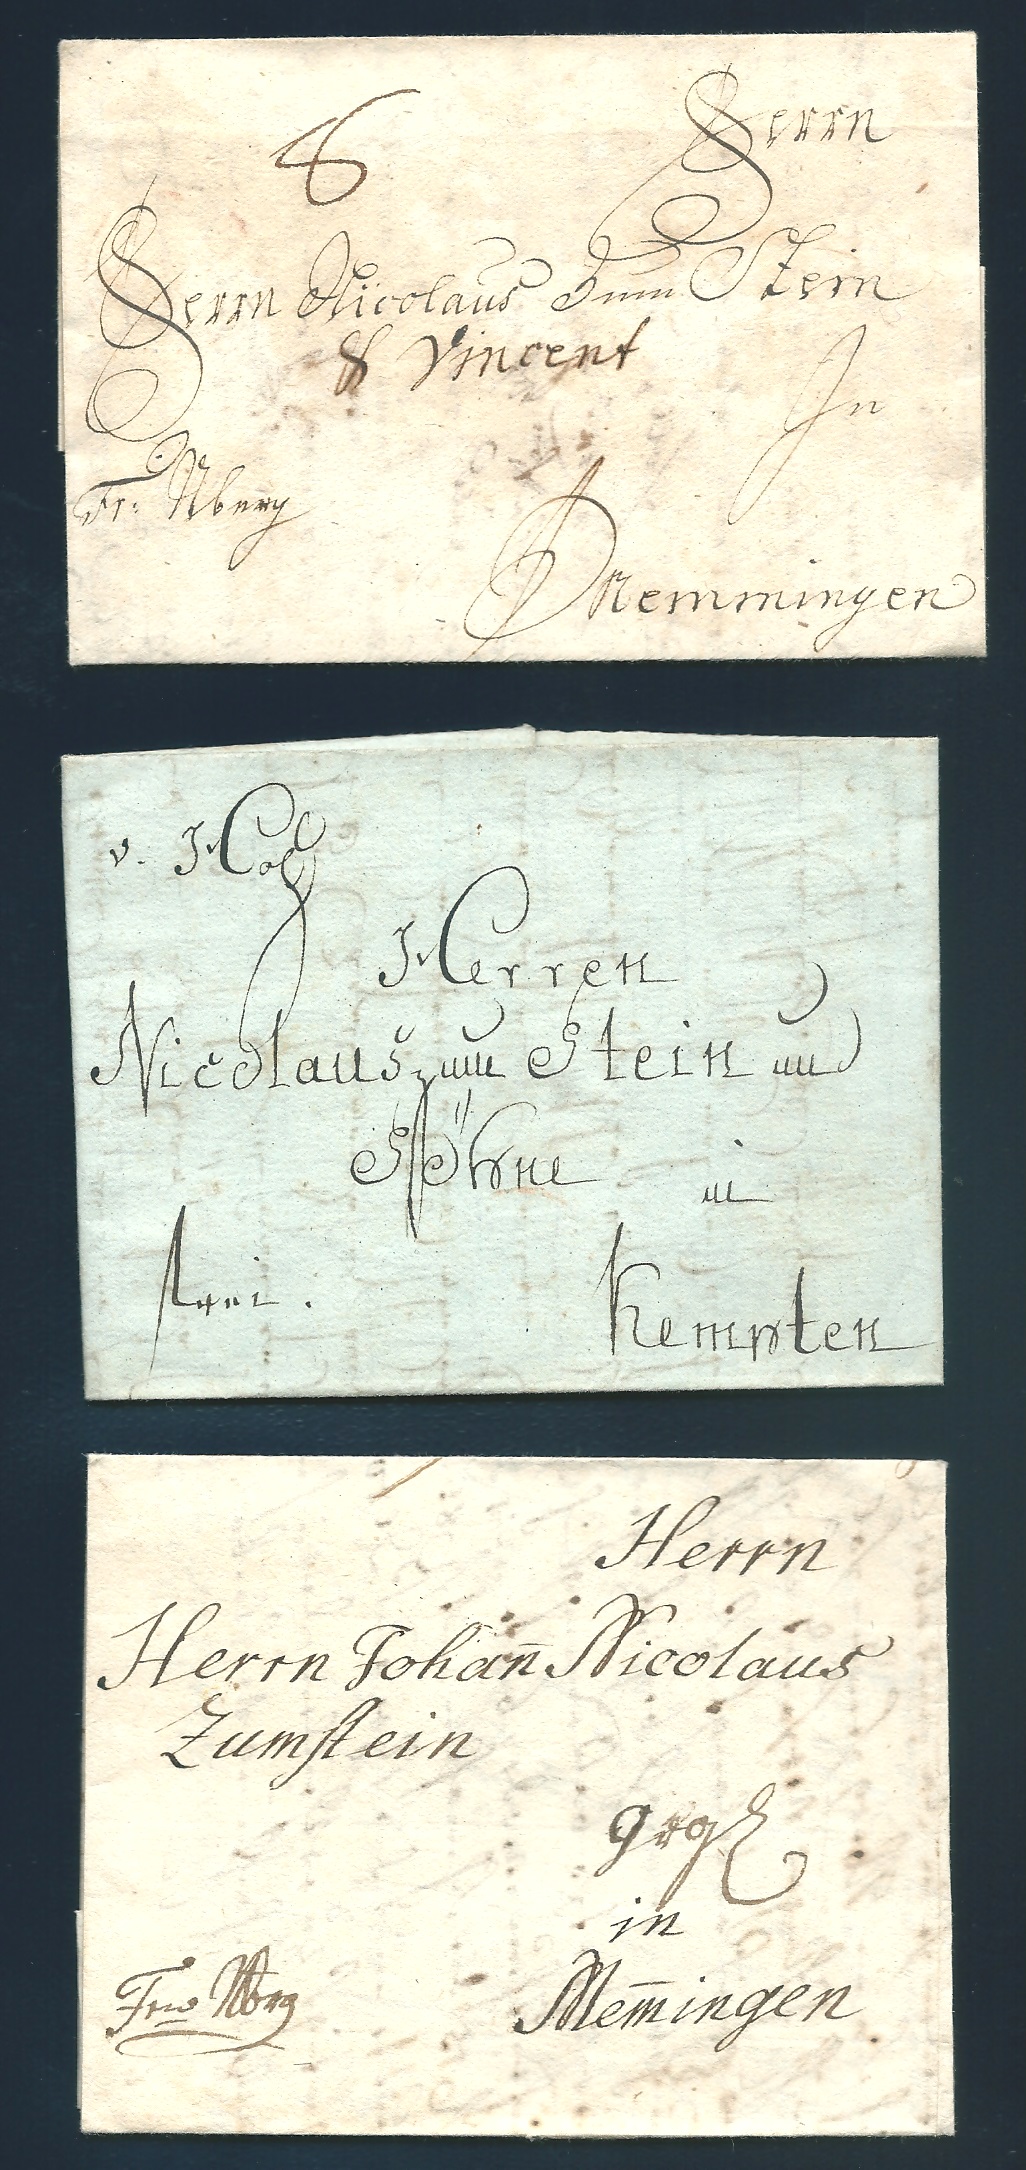 8
Herrn
Herrn Nicolaus Zum Stein
& Vincent
In
Fr: Nberg
Memmingen
v. Hof
Herren
Nicolaus zum Stein und
Söhne
in
frei.
Kempten
Herrn
Herrn Johan̄ Nicolaus
Zumstein
in
Frco Nbrg
Mem̄ingen